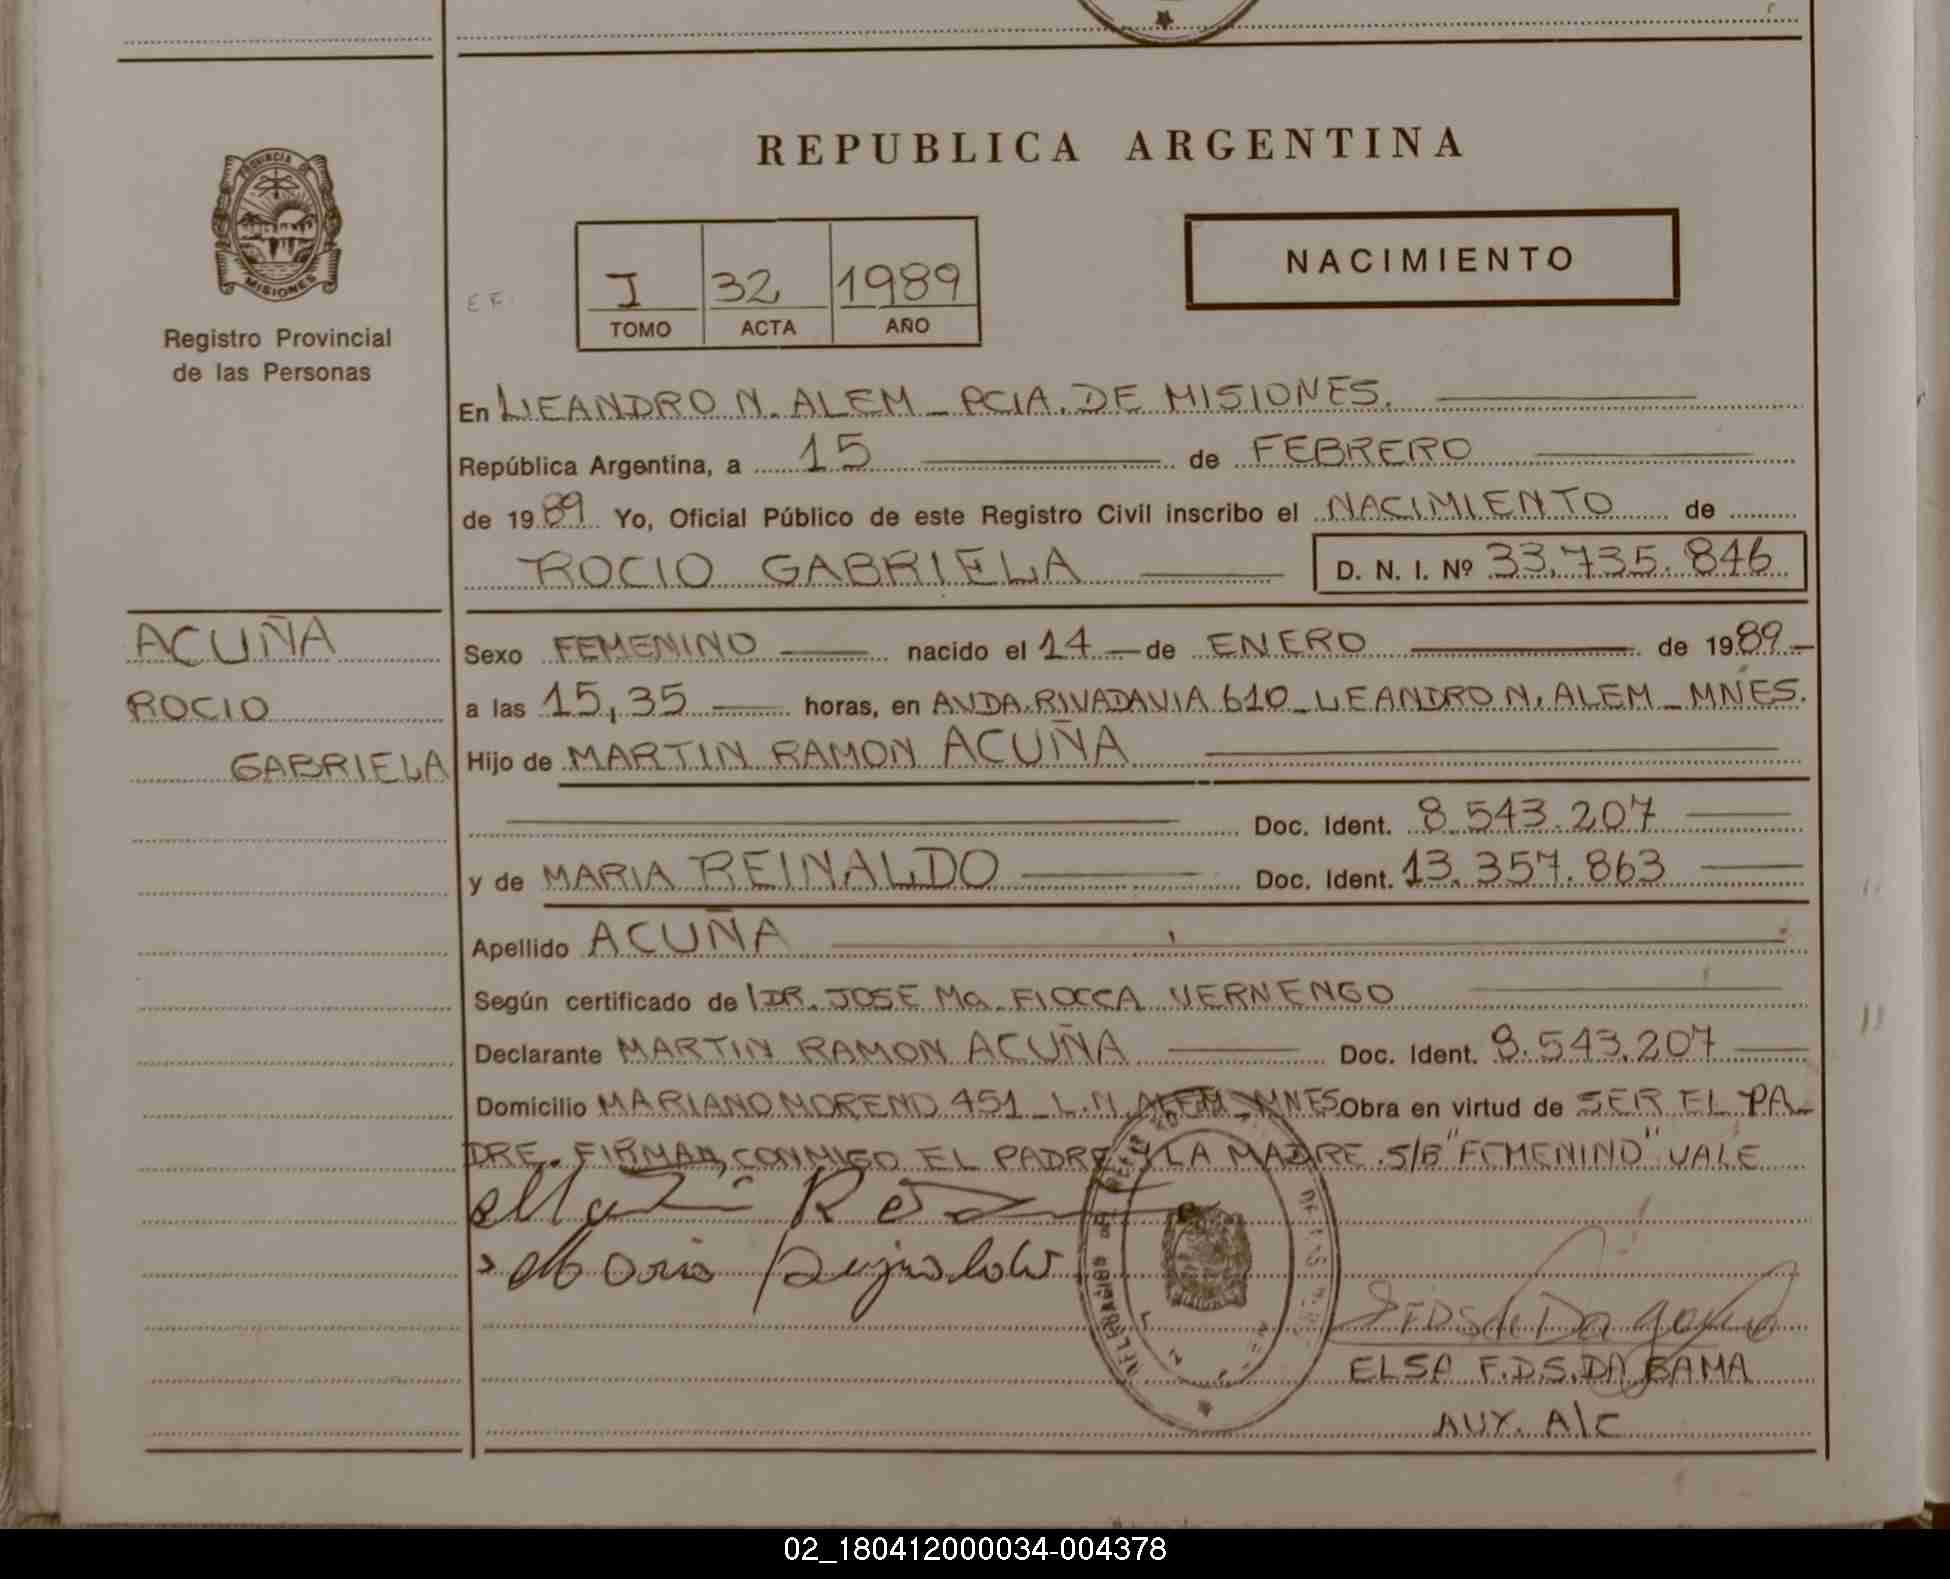 REPUBLICA ARGENTINA
PROVINCIA DE
MISIONES
Registro Provincial
de las Personas
I 32 1989
TOMO ACTA AÑO
NACIMIENTO
En LEANDRO N. ALEM _ PCIA. DE MISIONES.
República Argentina, a 15 de FEBRERO
de 1989 Yo, Oficial Público de este Registro Civil inscribo el NACIMIENTO de
ROCIO GABRIELA D. N. I. Nº 33.735.846
ACUÑA
ROCIO
GABRIELA
Sexo FEMENINO nacido el 14 de ENERO de 1989
a las 15,35 horas, en AVDA. RIVADAVIA 610 _ LEANDRO N. ALEM _ MNES.
Hijo de MARTIN RAMON ACUÑA
Doc. Ident. 8.543.207
y de MARIA REINALDO Doc. Ident. 13.357.863
Apellido ACUÑA
Según certificado de DR. JOSE Ma. FIOCCA VERNENGO
Declarante MARTIN RAMON ACUÑA Doc. Ident. 8.543.207
Domicilio MARIANO MORENO 451 _ L.N. ALEM _ MNES Obra en virtud de SER EL PA_
DRE. FIRMAN CONMIGO EL PADRE Y LA MADRE. S/B "FEMENINO" VALE
ELSA F.D.S. DA GAMA
AUX. A/C
02_180412000034-004378